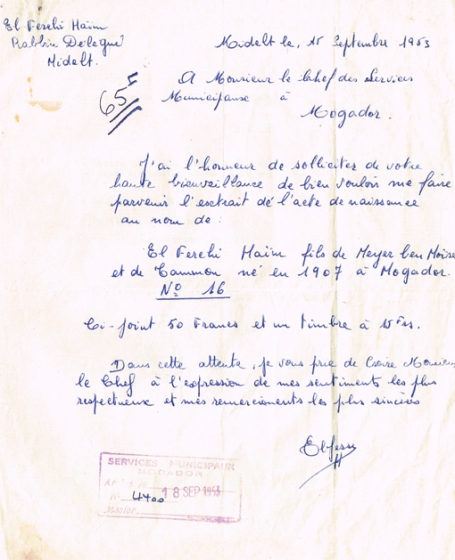 El Ferchi Haïm
Rabbin Délegué
Midelt.
Midelt le, 15 Septembre 1953
65
A Monsieur le Chef des Services
Municipaux à
Mogador.
J'ai l'honneur de solliciter de votre
haute bienveillance de bien vouloir me faire
parvenir l'extrait de l'acte de naissance
au nom de:
El Ferchi Haïm fils de Meyer ben Moïse
et de Tammou né en 1907 à Mogador.
Nº 16
Ci-joint 50 Francs et un timbre à 15 Frs.
Dans cette attente, je vous prie de Croire Monsieur
le Chef à l'expression de mes sentiments les plus
respectueux et mes remerciements les plus sincères
SERVICES MUNICIPAUX
MOGADOR
18 SEP 1953
4400